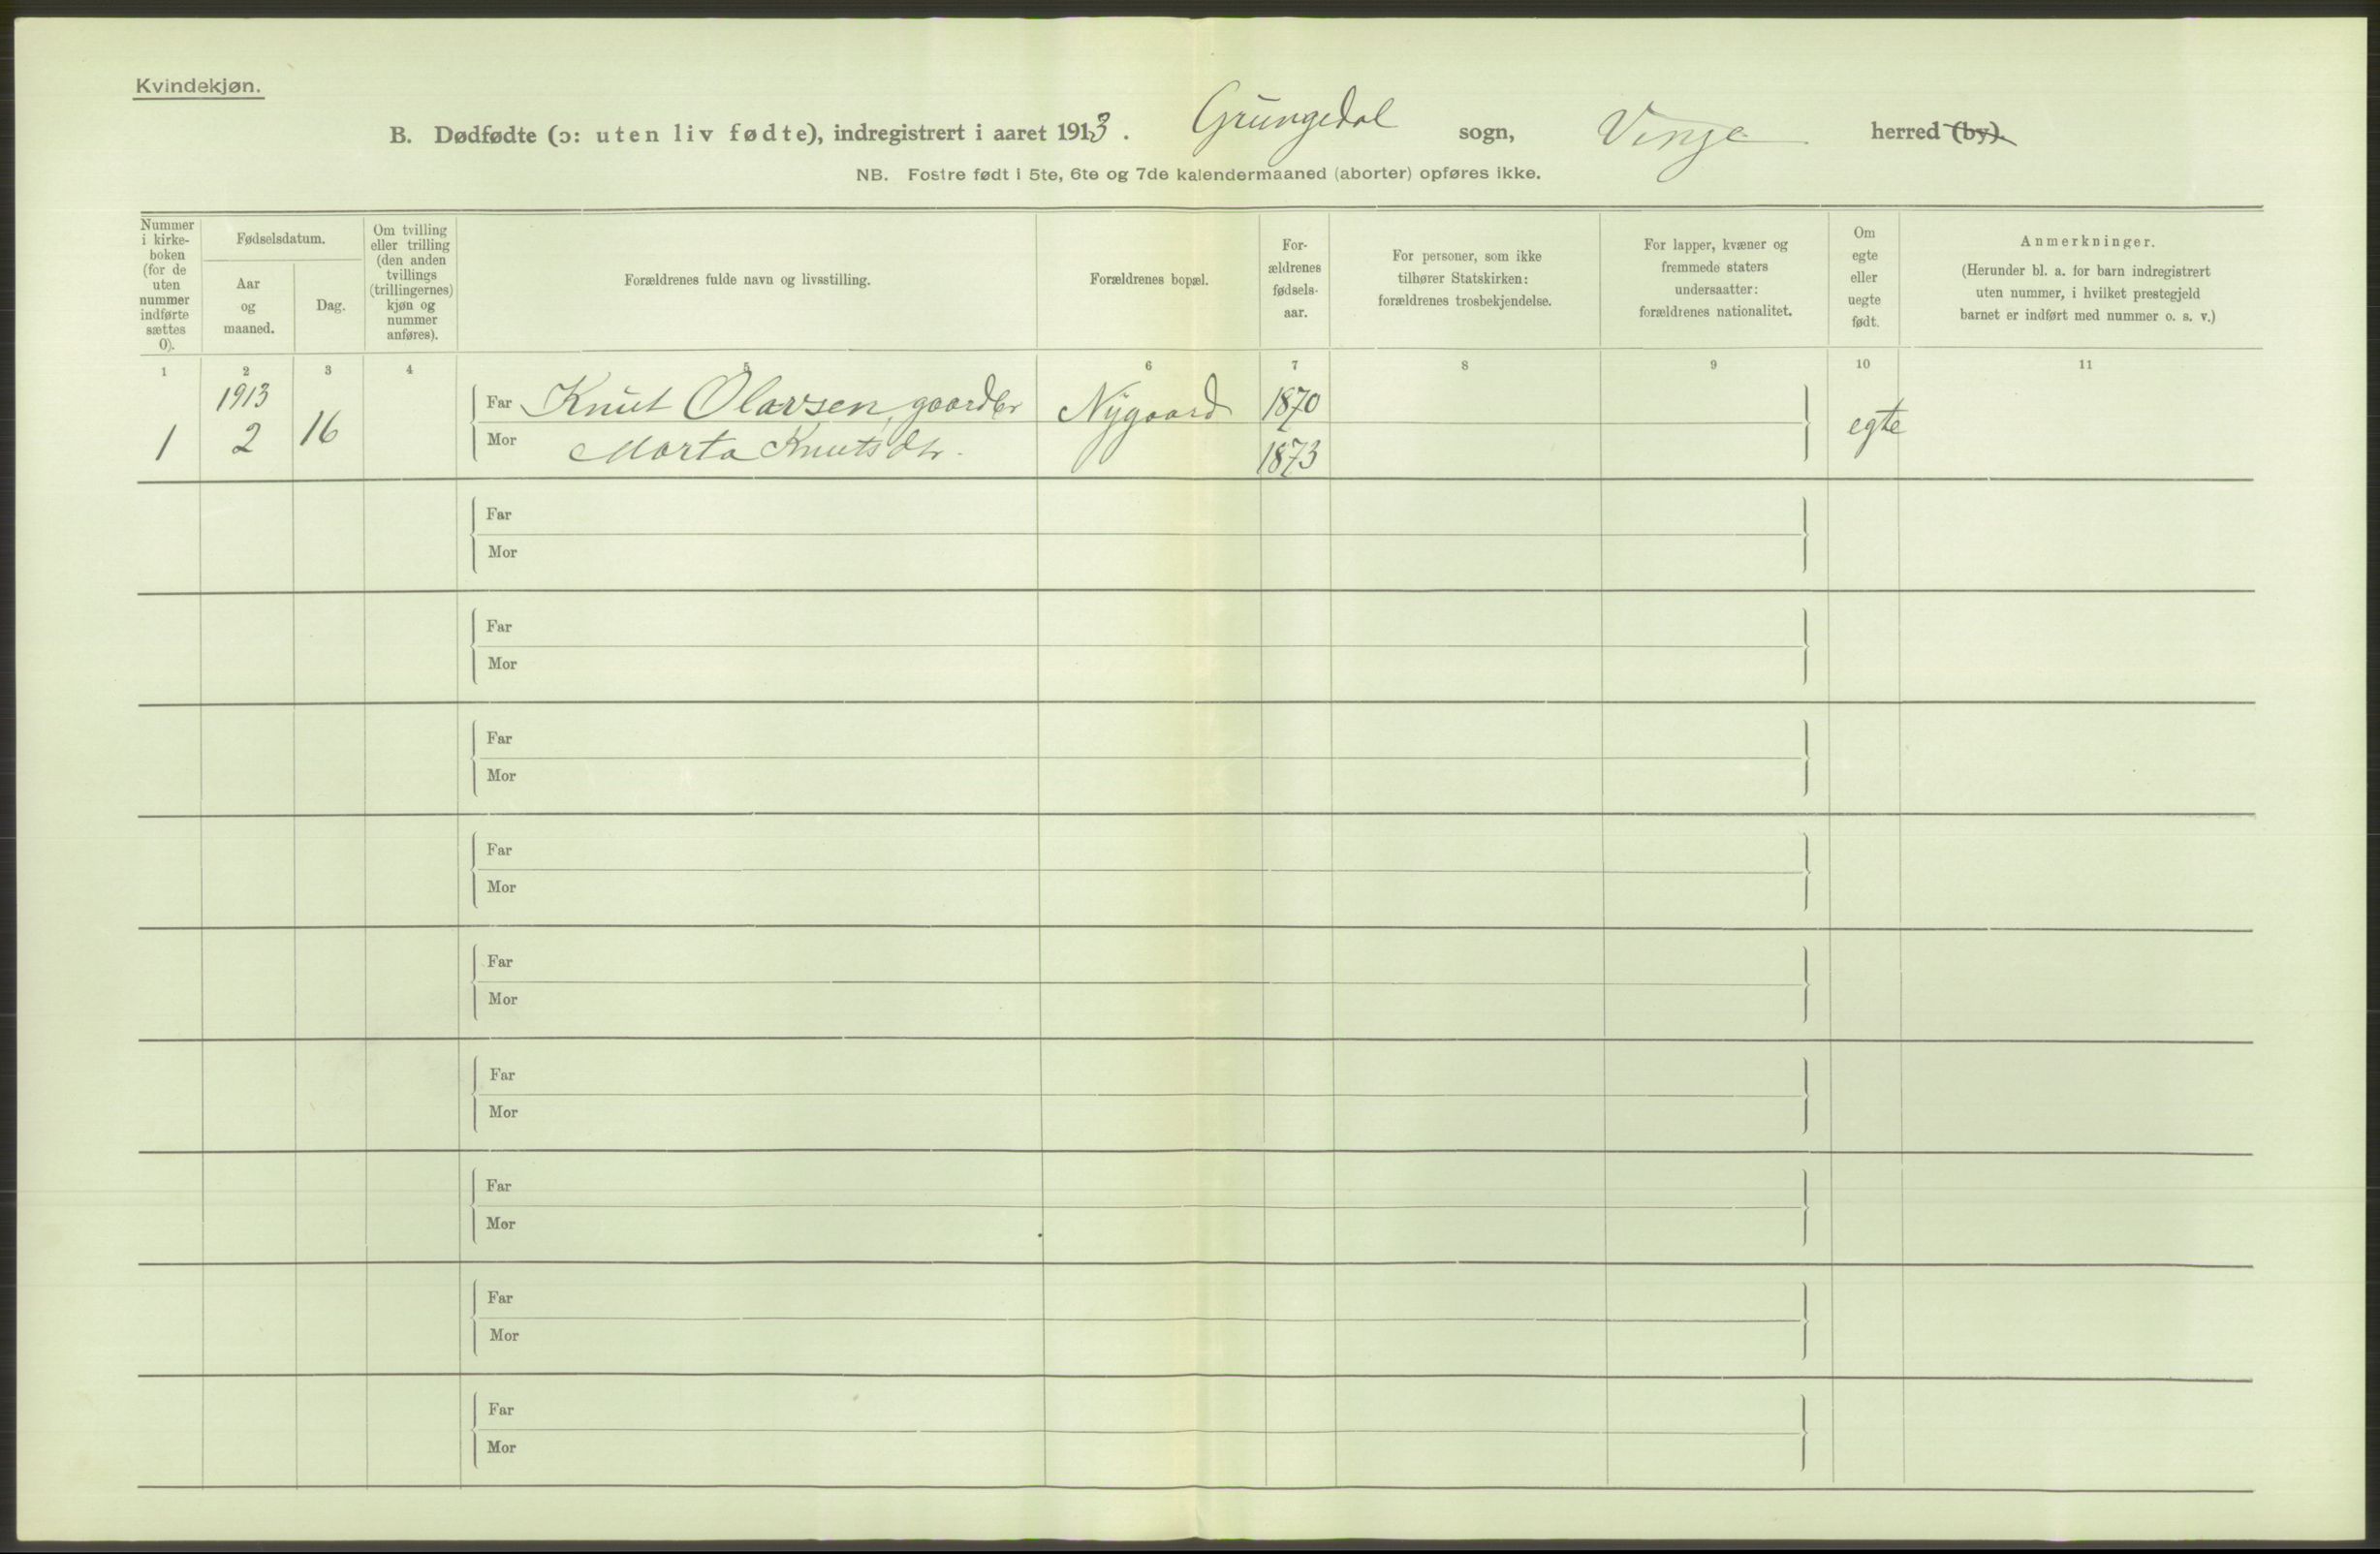 Kvindekjøn.
B. Dødfødte (ɔ: uten liv fødte), indregistrert i aaret 1913. Grungedal sogn, Vinje herred (by).
NB. Fostre født i 5te, 6te og 7de kalendermaaned (aborter) opføres ikke.
Nummer
i kirke-
boken
(for de
uten
nummer
indførte
sættes
0).
Fødselsdatum.
Aar
og
maaned.
Dag.
Om tvilling
eller trilling
(den anden
tvillings
(trillingernes)
kjøn og
nummer
anføres).
Forældrenes fulde navn og livsstilling.
Forældrenes bopæl.
For-
ældrenes
fødsels-
aar.
For personer, som ikke
tilhører Statskirken:
forældrenes trosbekjendelse.
For lapper, kvæner og
fremmede staters
undersaatter:
forældrenes nationalitet.
Om
egte
eller
uegte
født.
Anmerkninger.
(Herunder bl. a. for barn indregistrert
uten nummer, i hvilket prestegjeld
barnet er indført med nummer o. s. v.)
1 2 3 4 5 6 7 8 9 10 11
1913
1 2 16
Far Knut Olavsen, gaardbr Nygaard 1870
Mor Marta Knutsdtr. 1873
egte
Far
Mor
Far
Mor
Far
Mor
Far
Mor
Far
Mor
Far
Mor
Far
Mor
Far
Mor
Far
Mor